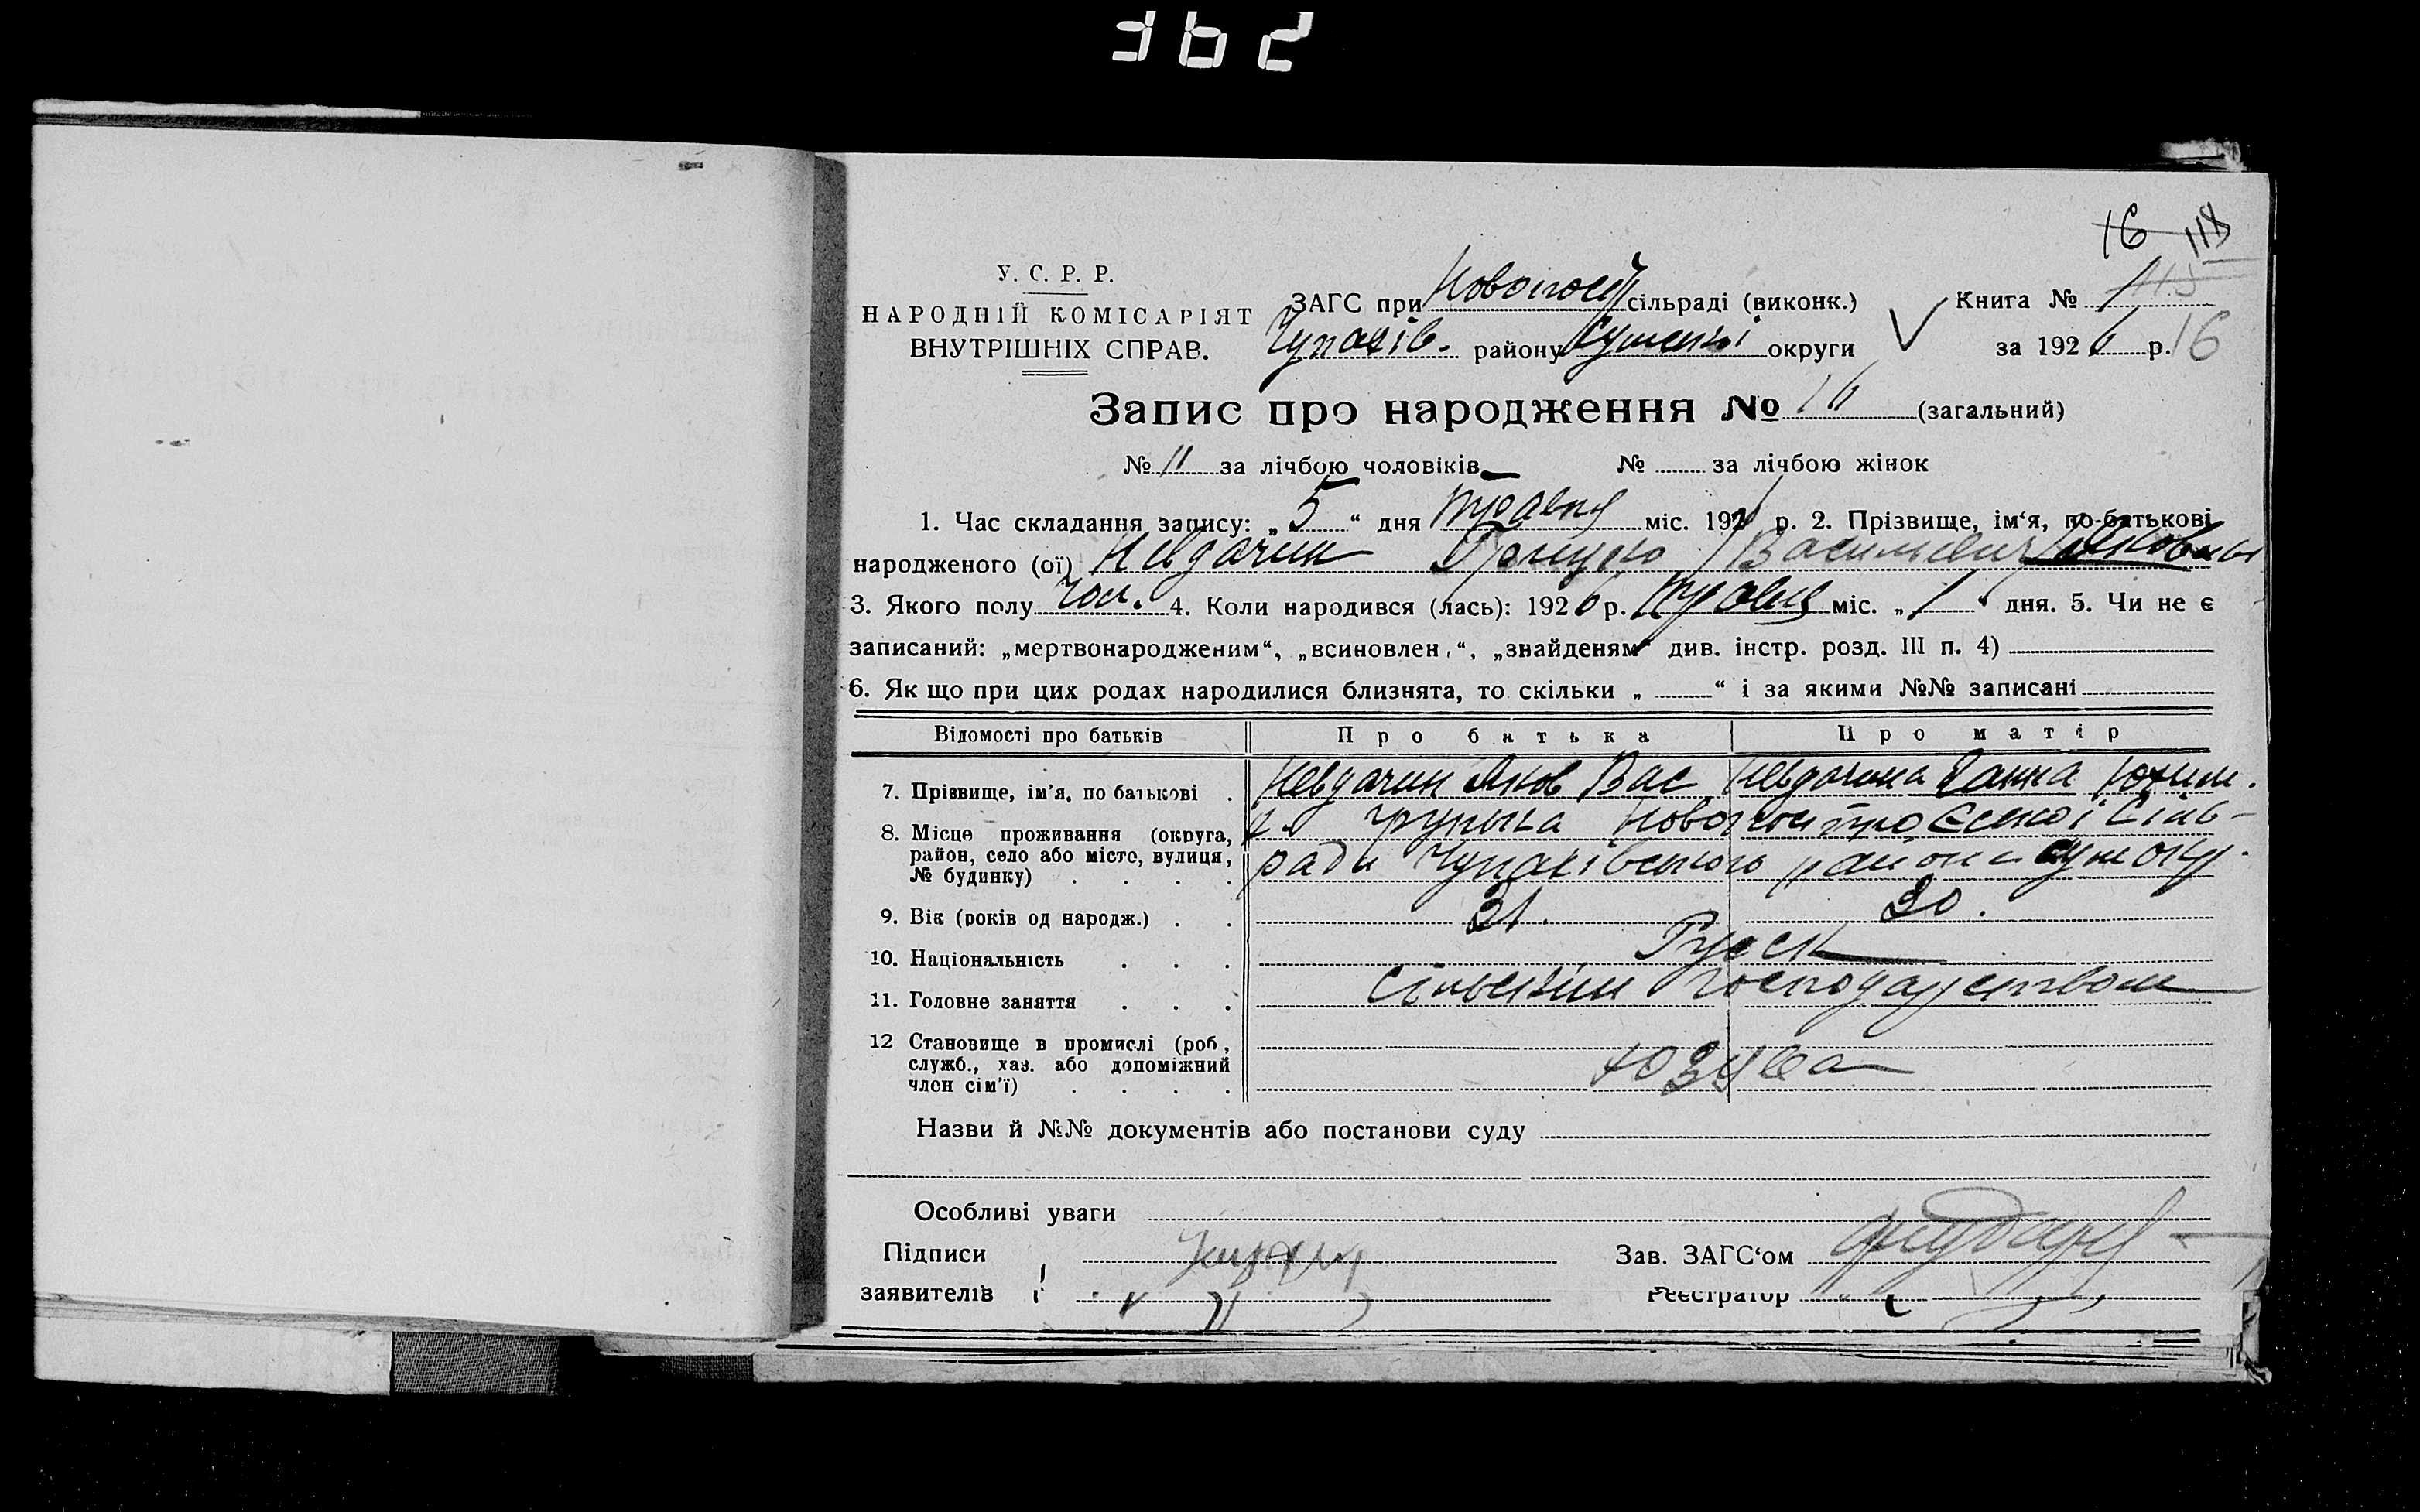 362
16 118
У. С. Р. Р.
НАРОДНІЙ КОМІСАРІЯТ
ВНУТРІШНІХ СПРАВ.
ЗАГС при сільраді (виконк.)
Чупахів. району Сумської округи
Книга № 1 115
за 1926 р. 16
Запис про народження № 16 (загальний)
№ 11 за лічбою чоловіків № за лічбою жінок
1. Час складання запису: „ 5 “ дня травня міс. 192 р. 2. Прізвище, ім‘я, по-батькові
народженого (ої) Невдачин Грицько Василевич Якович
3. Якого полу чол. 4. Коли народився (лась): 1926 р. травня міс. „ 1 “ дня. 5. Чи не є
записаний: „мертвонародженим“, „всиновлен “, „знайденям“ див. інстр. розд. III п. 4)
6. Як що при цих родах народилися близнята, то скільки „ “ і за якими №№ записані
Відомості про батьків Про батька Про матір
7. Прізвище, ім’я, по батькові . Невдачин Яков Вас Невдачина Ганна Юхим.
8. Місце проживання (округа, район, село або місто, вулиця, № будинку) . . . .
Грунька сіль-
ради Чупахівського района сум окр.
9. Вік (років од народж.) . . 31. 30.
10. Національність . . . Руск
11. Головне заняття . . . сільским господарством
12 Становище в промислі (роб, служб., хаз. або допоміжний член сім’ї) . . . .
хозяева
Назви й №№ документів або постанови суду
Особливі уваги
Підписи
заявителів
Зав. ЗАГС‘ом
Реєстратор